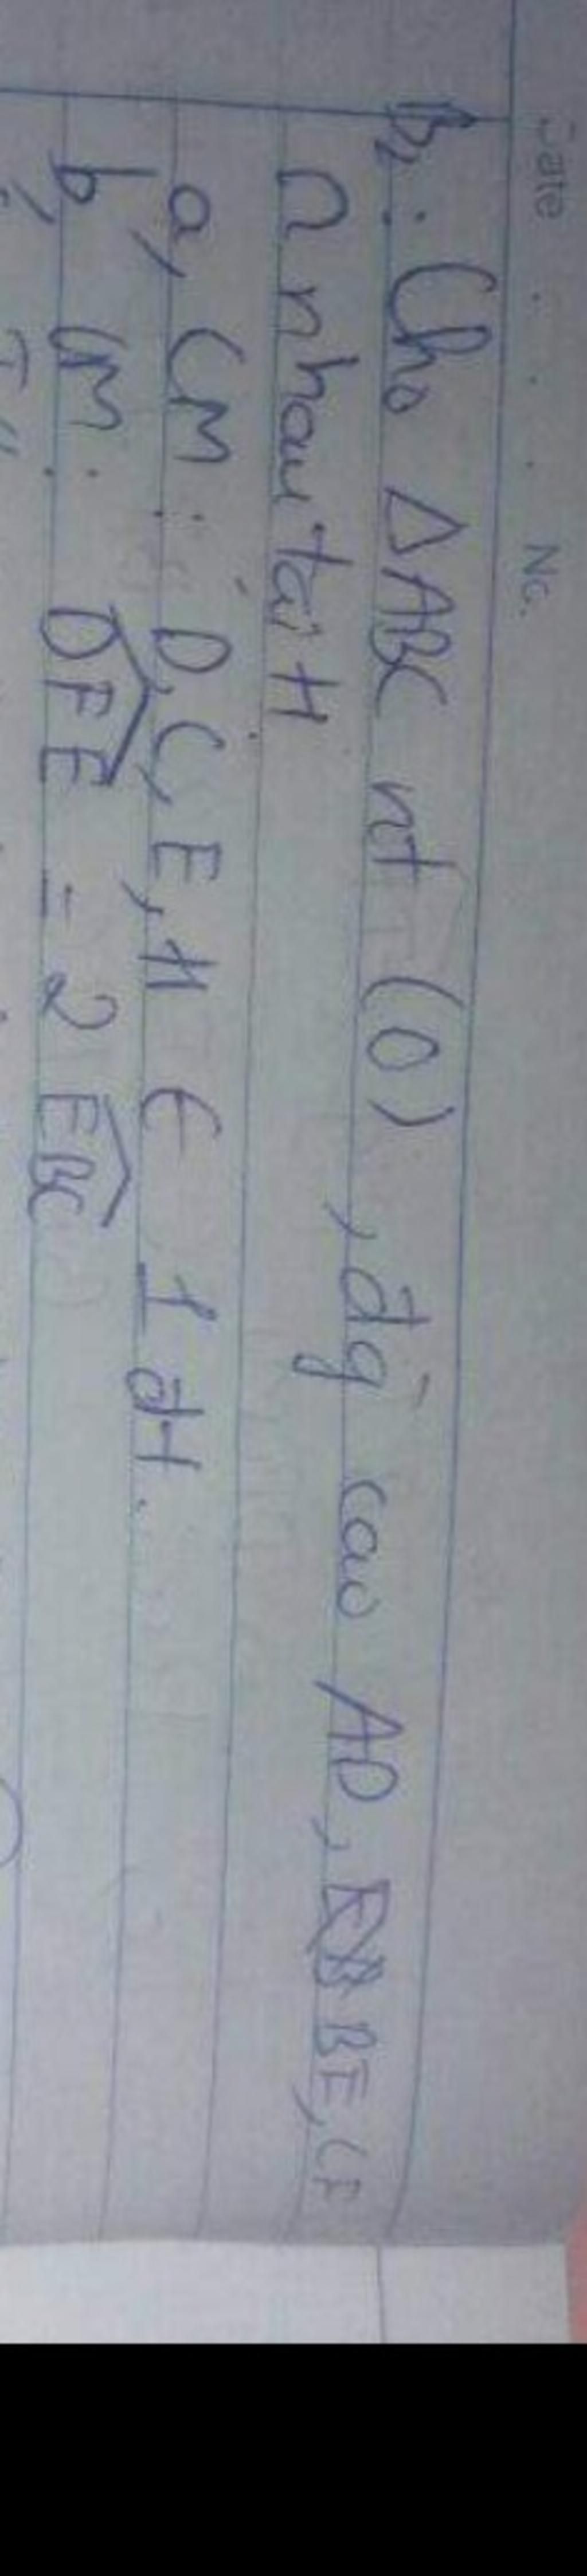 Date . . . No.
B2: Cho ΔABC nt (O), đg cao AD, BE, CF
∩ nhau tại H
a, CM: D, C, E, H ∈ 1 đt.
b, CM: DFE = 2 EBC